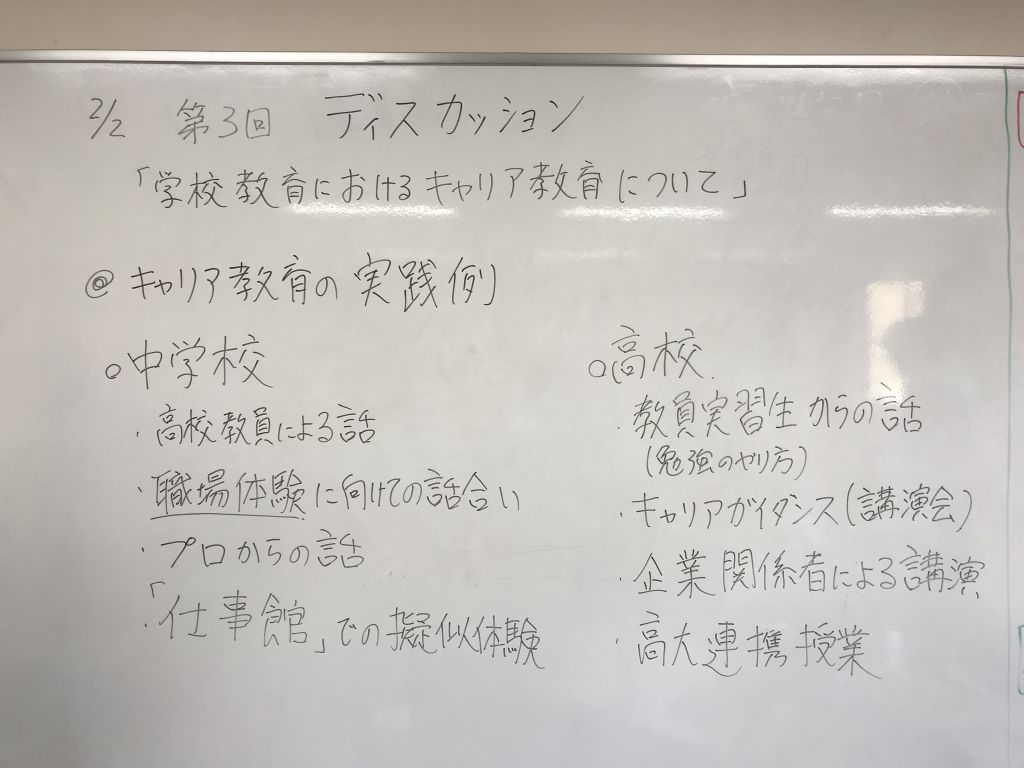 2/2 第3回 ディスカッション
「学校教育におけるキャリア教育について」
@ キャリア教育の実践例
○中学校
・高校教員による話
・職場体験に向けての話合い
・プロからの話
・「仕事館」での擬似体験
○高校
・教員実習生からの話
(勉強のやり方)
・キャリアガイダンス(講演会)
・企業関係者による講演
・高大連携授業